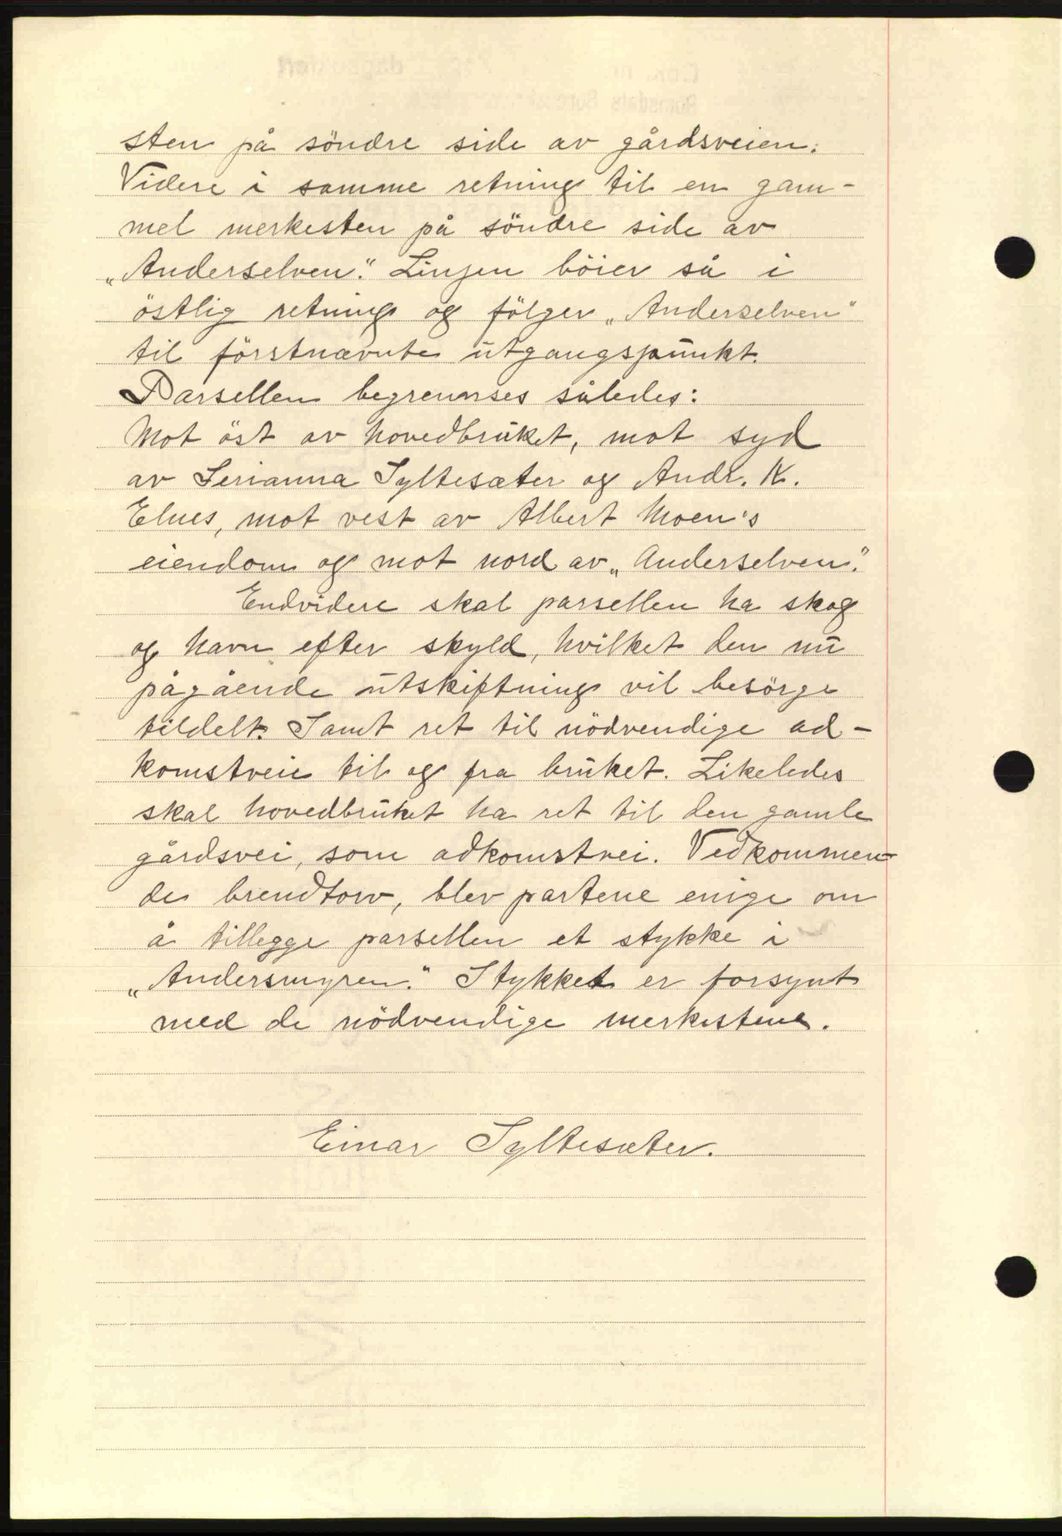 sten på söndre side av gårdsveien.
Videre i samme retning til en gam-
mel merkesten på söndre side av
„Anderselven." Linjen böier så i
östlig retning og fölger „Anderselven"
til förstnævnte utgangspunkt.
Parsellen begrenses således:
Mot öst av hovedbruket, mot syd
av Serianna Syltesæter og Andr. K.
Elnes, mot vest av Albert Moen's
eiendom og mot nord av „Anderselven".
Endvidere skal parsellen ha skog
og havn efter skyld, hvilket den nu
pågående utskiftning vil besörge
tildelt. Samt ret til nödvendige ad-
komstveie til og fra bruket. Likeledes
skal hovedbruket ha ret til den gamle
gårdsvei, som adkomstvei. Vedkommen-
de brendtorv, blev partene enige om
å tillegge parsellen et stykke i
„Andersmyren." Stykket er forsynt
med de nödvendige merkestene.
Einar Syltesæter.